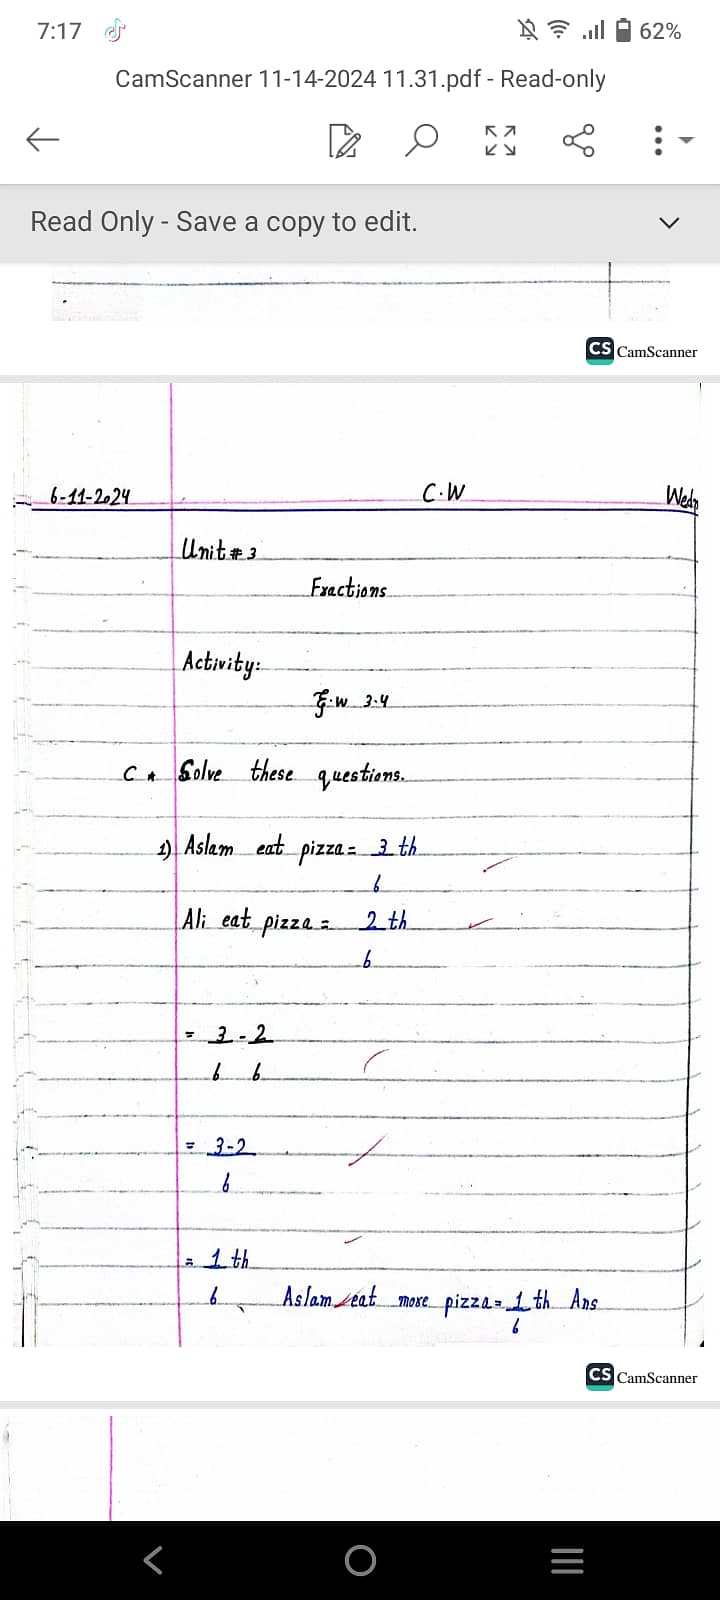 7:17 62%
CamScanner 11-14-2024 11.31.pdf - Read-only
Read Only - Save a copy to edit.
CS CamScanner
6-11-2024 C.W Wedn
Unit # 3
Fractions
Activity:
3.4
C * Solve these questions.
1) Aslam eat pizza = 3 th
6
Ali eat pizza = 2 th
6
= 3 - 2
6 6
= 3-2
6
= 1 th
6 Aslam eat more pizza = 1 th Ans
6
CS CamScanner